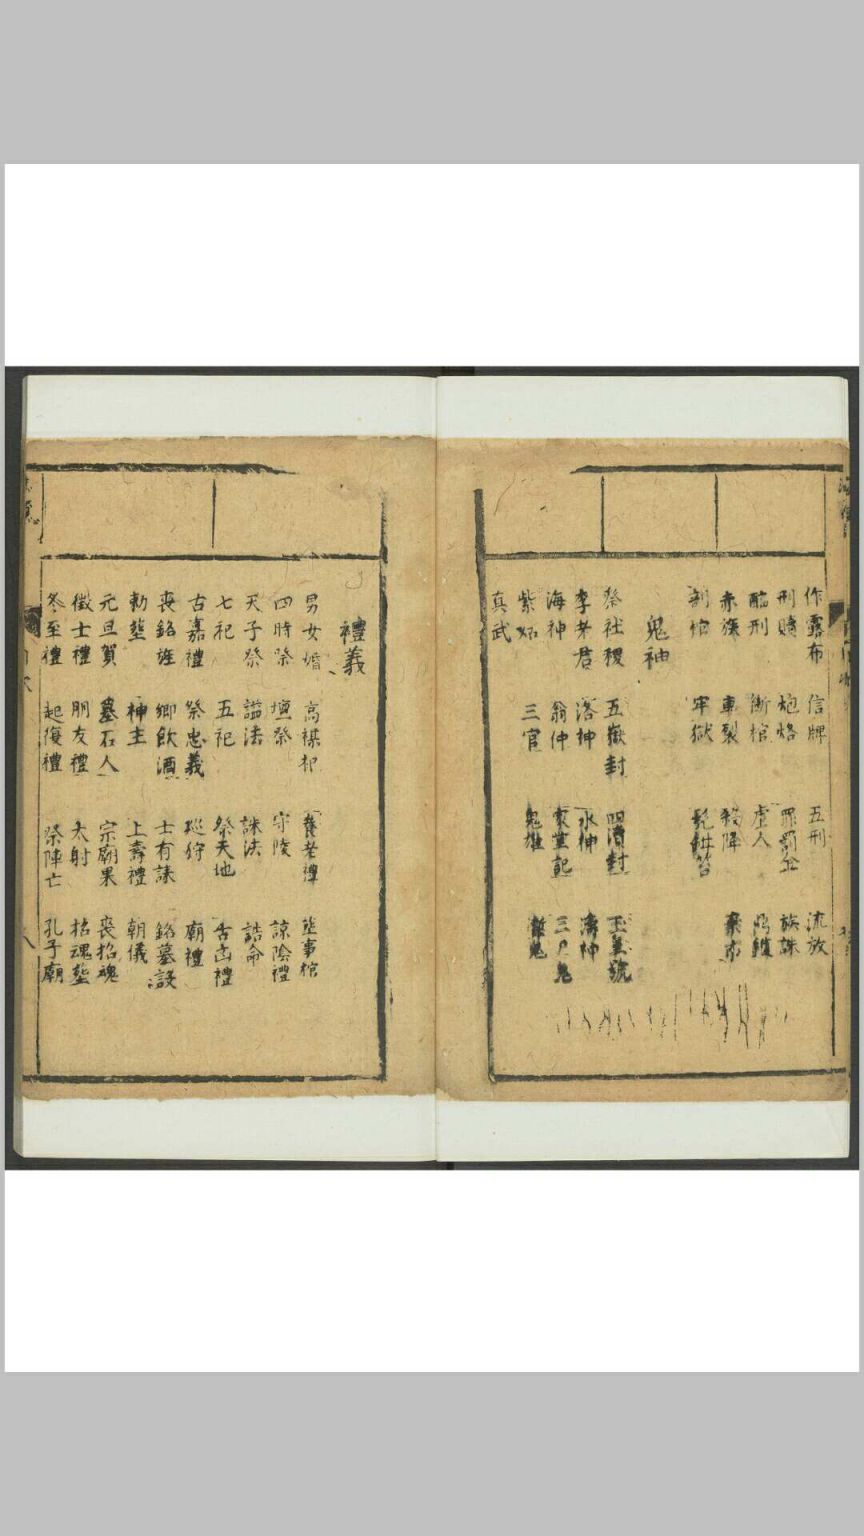 作露布 信牌 五刑 流放
刑賭 炮烙 罪罰金 族誅
臨刑 斷棺 虐人
赤族 車裂 殺降 棄市
剖棺 牢獄 髠鉗笞
鬼神
祭社稷 五嶽封 四瀆封 玉皇號
李老君 洛神 水神 濤神
海神 翁仲 三尸鬼
紫姑 三官
真武
禮義
男女婚 高禖祀 養老禮 塟事棺
四時祭 壇祭 守陵 諒陰禮
天子祭 謚法 誄法 誥命
七祀 五祀 祭天地 吉凶禮
古嘉禮 祭忠義 巡狩 廟禮
喪銘旌 鄉飲酒 士有誄 銘墓誌
勅塟 神主 上壽禮 朝儀
元旦賀 墓石人 宗廟果 喪招魂
徵士禮 朋友禮 大射 招魂塟
冬至禮 起復禮 祭陣亡 孔子廟